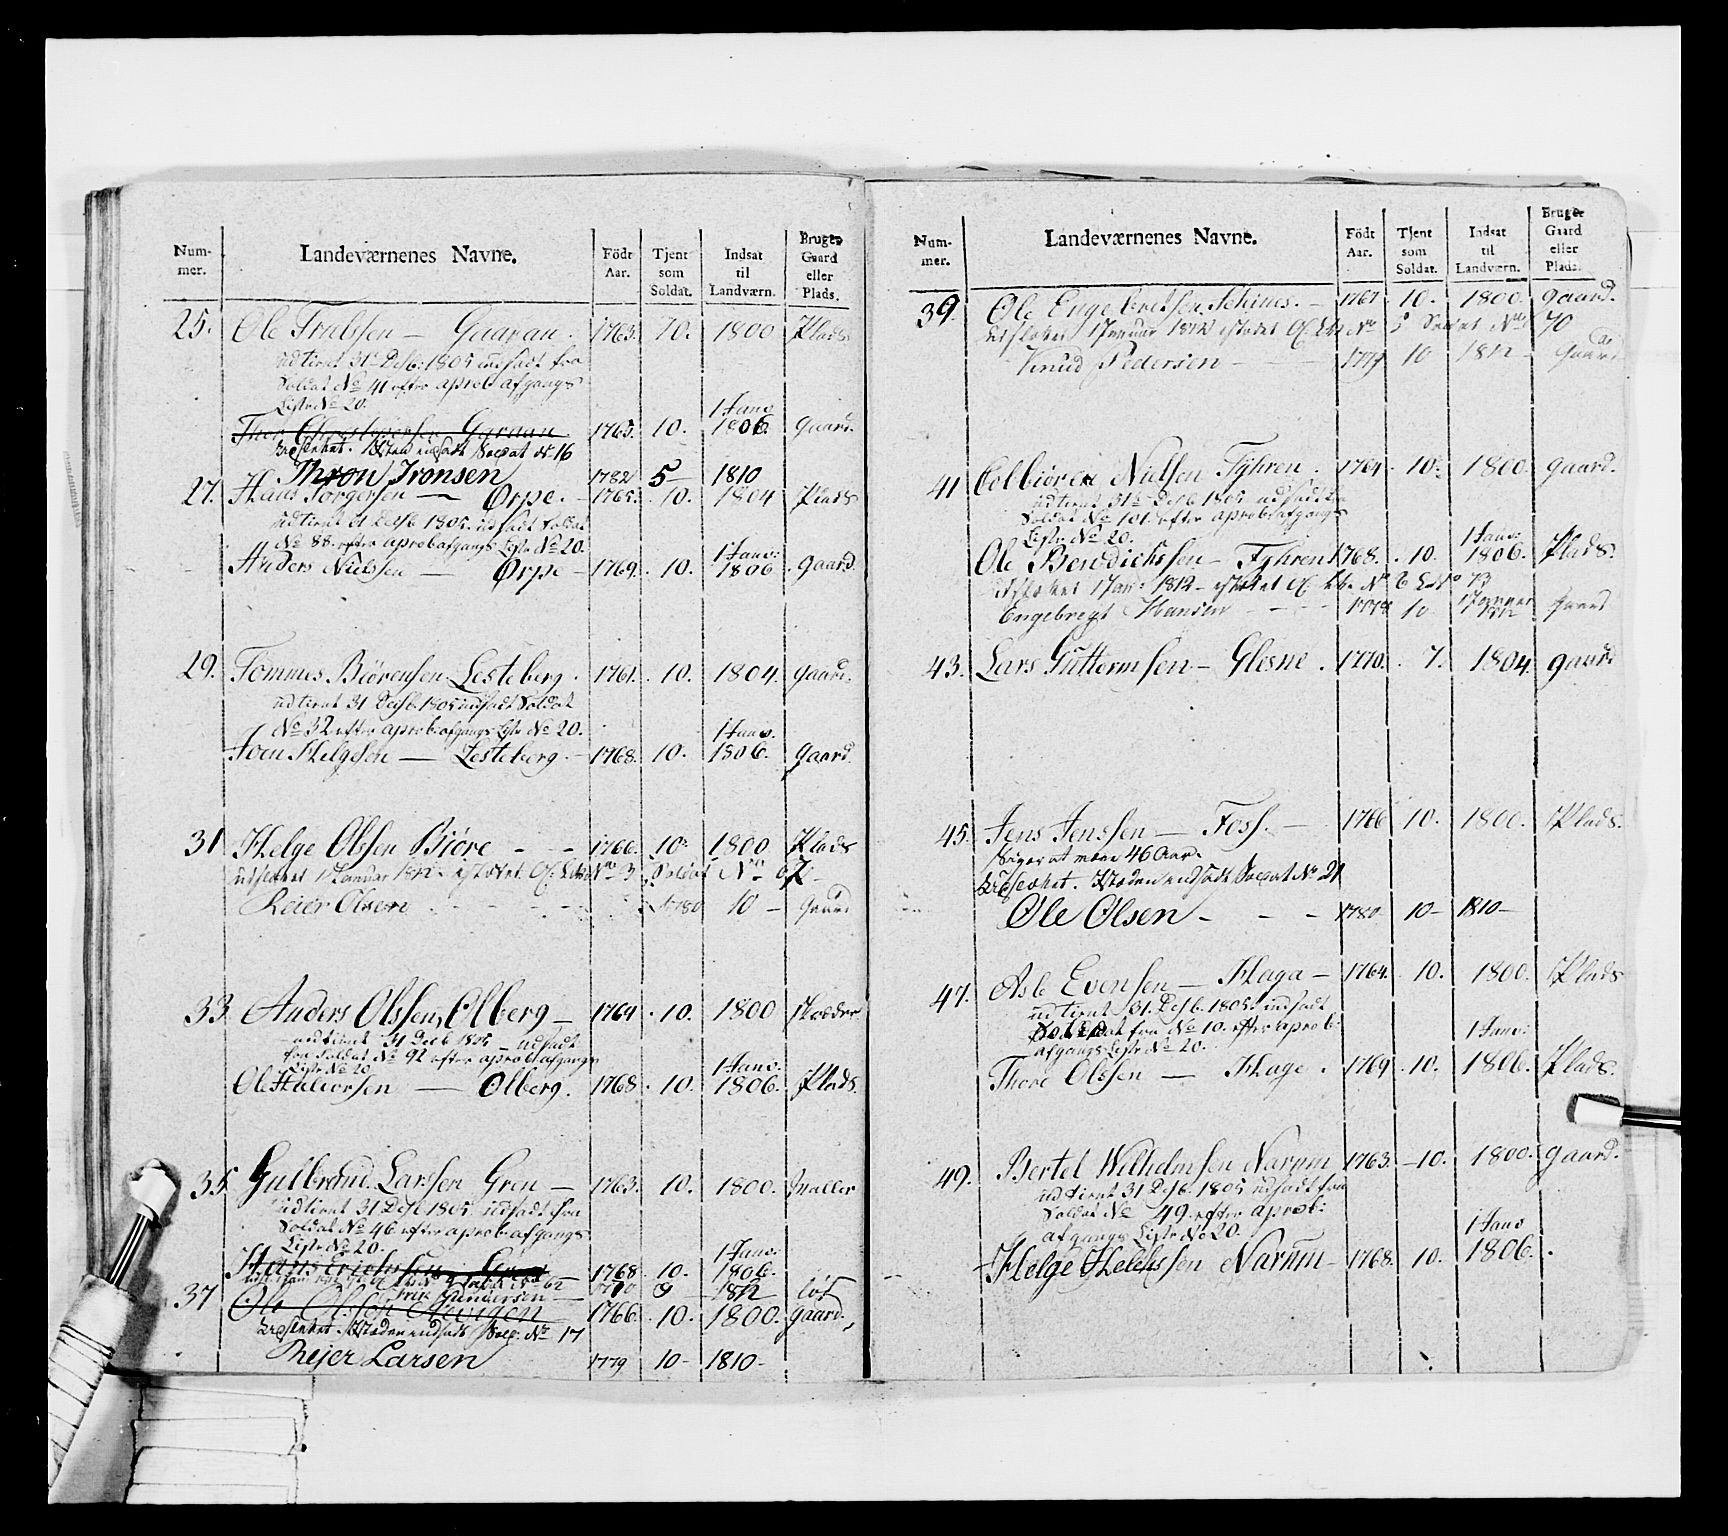 Num-
mer.
Landeværnenes Navne.
Födt
Aar.
Tjent
som
Soldat.
Indsat
til
Landværn.
Bruger
Gaard
eller
Plads.
25. Ole Trulssen — Gaavan. 1763. 10. 1800 Plads
udtient 31te Decb: 1805 indsadt fra
Soldat No 41 efter aprob: afgangs
Liste No 20.
1 Janv
Thor Garaan 1765. 10. 1806. Gaard.
indsadt Soldat No 16
Thron Ironsen 1782 5 — 1810
27. Hans Torgersen — Ørpe. — 1765. 10. 1804 Plads
udtient 31 Decb 1805. indsadt Soldat
No 88. efter aprob: afgangs Liste No 20.
1 Janv:
Anders Nielssen — Ørpe — 1769. 10. 1806 Gaard
29. Tommes Biörensen Lesteberg. 1761. 10. 1804. Gaard.
udtient 31 Decb. 1805 indsadt Soldat
No 32 efter aprob: afgangs Liste No 20.
1 Janv.
Joen Helgesen — Lesteberg. — 1768. 10. 1806. Gaard.
31 Helge Olssen Biöre — — 1766. 10. 1800 Plads
1 Januar 1812 No 3 Soldat No 67
Reier Olsen 1780 10 — Gaard
33. Anders Olssen, Olberg — 1764. 10. 1800
udtient 31 Decb 1805 — indsadt
fra Soldat No 92 efter aprob: afgangs
Liste No 20
1 Janv.
Ole Halvorsen — Olberg. 1768. 10. 1806. Plads.
35. Gulbrand Larssen Gren — 1763. 10. 1800.
udtient 31 Decb 1805. indsadt fra
Soldat No 46 efter aprob: afgangs
Liste No 20.
1 Janv:
Hans Erichssen Gren — 1768. 10. 1806.
No 62
Gundersen — 1770 9 — 1812 löst
37 Ole Olsen 1766. 10. 1800. Gaard.
indsadt Sold. No 17
Rejer Larsen 1779 10 — 1810 —
Num-
mer.
Landeværnenes Navne.
Födt
Aar.
Tjent
som
Soldat.
Indsat
til
Landværn.
Bruger
Gaard
eller
Plads.
39. Ole Engebretsen Schiues. — 1767. 10. 1800. Gaard.
1 Januar 1812 No 5 Soldat No 70
Knud Pedersen — 10 1812 Gaard
41 Colbiören Nielsen Tyhren. 1764. 10. 1800. Gaard.
udtient 31te Decb. 1805 indsadt fra
Soldat No 101. efter aprob: afgangs
Liste No 20.
1 Janv:
Ole Bendichssen — Tyhren 1768. 10. 1806. Plads.
1 Jan: 1812 — No 6 No 73
1 Januar
Engebregt Hansen — — — 10 1812 Gaard
43. Lars Guttormsen — Glesne. 1770. 7. 1804. Gaard
45. Jens Jenssen — Foss. — 1766 10. 1800. Plads.
Siger at være 46 Aar.
indsadt Soldat No 21
Ole Olsen — — — 1780 10 — 1810 —
47. Asle Evensen — Haga — 1764. 10. 1800. Plads
udtient 31. Decb. 1805. indsadt
Soldat fra No 10. efter aprob:
afgangs Liste No 20.
1 Janv:
Thore Olssen — Hage. 1769 10. 1806. Plads.
49. Bertel Wilhelmsen Narum 1763. 10. 1800. Gaard.
udtient 31 Decb. 1805 indsadt fra
Soldat No 49. efter aprob:
afgangs Liste No 20.
1 Janv
Helge Narum — 1768. 10. 1806.